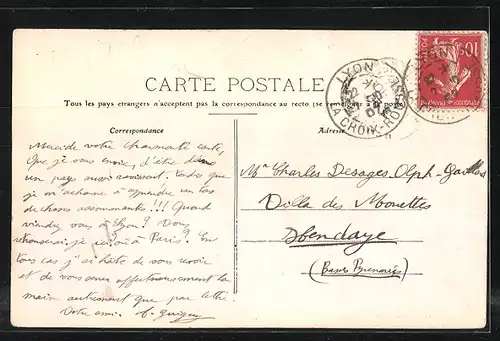 CARTE POSTALE
Tous les pays étrangers n'acceptent pas la correspondance au recto (se renseigner à la poste)
Correspondance
Adresse
LYON
LA CROIX-ROUSSE
10
POSTES
Merci de votre charmante carte,
Que je vous envie, d'être dans
un pays aussi ravissant. Tandis que
je m'acharne à apprendre un tas
de choses assommantes!!! Quand
viendrez vous à Lyon? Vous
reverrai je à Paris? En
tous cas j'ai hâte de vous revoir
et de vous serrer affectueusement la
main autrement que par lettre.
Votre ami
Mr Charles Desages Olph-Gaillard
Villa des Mouettes
Hendaye
(Basses Pyrénées)